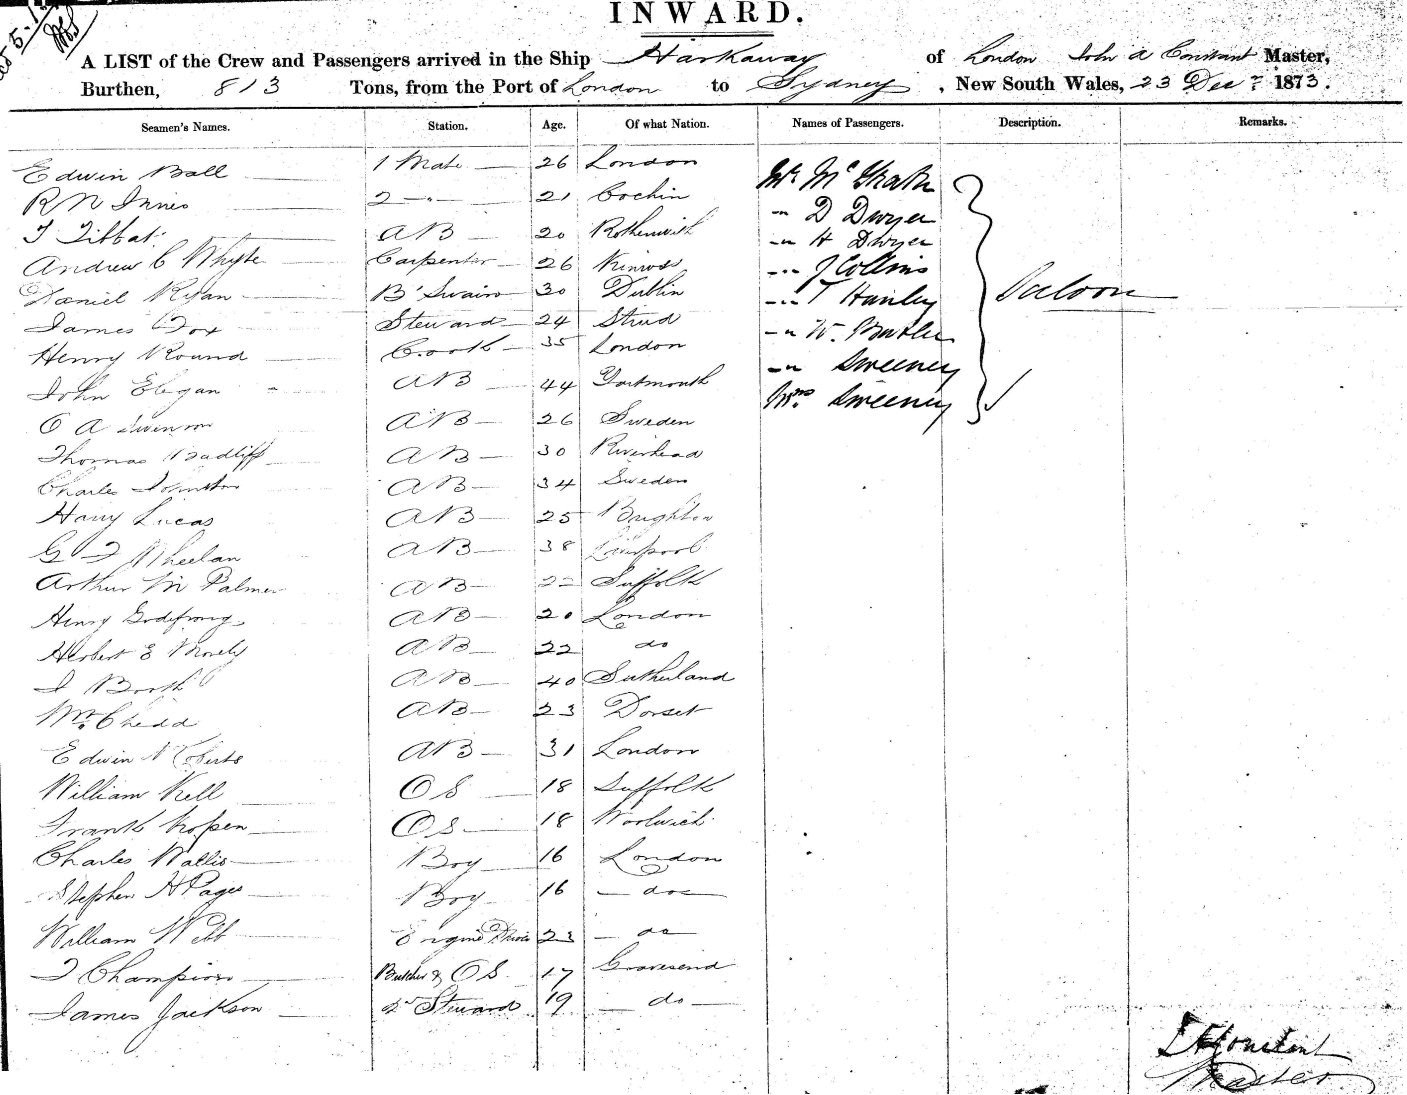 INWARD.
A LIST of the Crew and Passengers arrived in the Ship Harkaway of London John A Constant Master,
Burthen, 813 Tons, from the Port of London to Sydney, New South Wales, 23 Decr 1873.
Seamen's Names. Station. Age. Of what Nation. Names of Passengers. Description. Remarks.
Edwin Ball 1 Mate 26 London Mr McGrath
R N Innes 2 -"- 21 Cochin -"- D Dwyer
AB 20 -"- H Dwyer
Andrew C Whyte Carpenter 26 Kinross -"- J Collins
Daniel Ryan B'Swain 30 Dublin -"- T Hanley Saloon
James Fox Steward 24 -"- W. Butler
Henry Round Cook 35 London -"- Sweeney
John AB 44 Dartmouth Mrs. Sweeney
O A AB 26 Sweden
Thomas AB 30
Charles Johnston AB 34 Sweden
Harry Lucas AB 25 Brighton
G Wheelan AB 38 Liverpool
Arthur M Palmer AB 22 Suffolk
Henry Godefroy AB 20 London
Herbert E AB 22 do
Booth AB 40 Sutherland
Wm. Chedd AB 23 Dorset
Edwin Roberts AB 31 London
William Kell OS 18 Suffolk
Frank OS 18 Woolwich
Charles Wallis Boy 16 London
Stephen H Pages Boy 16 - do -
William Webb Engine Driver 23 - do
Champion Butcher & OS 17 Gravesend
James Jackson 2nd Steward 19 - do -
J A Constant
Master